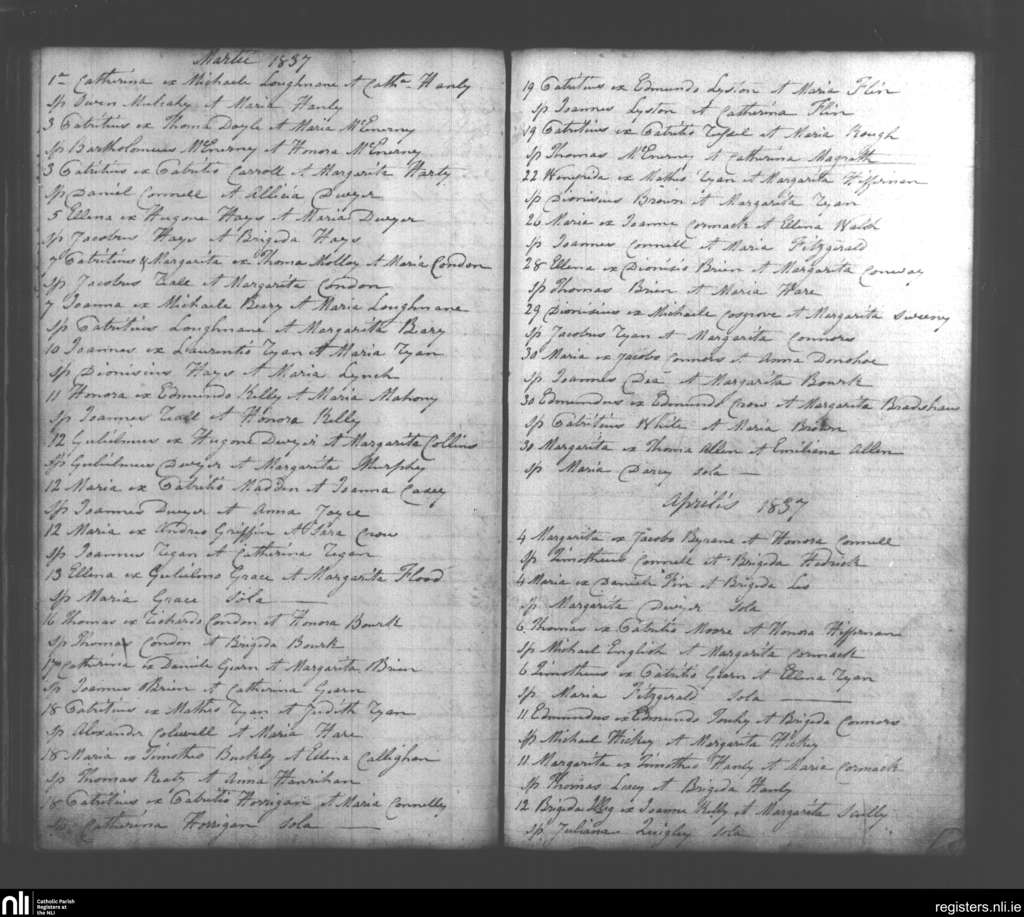 Martii 1837
1a Catherina ex Michaele Loughnane et Cath. Hanly
Sp Owen Mulcahy et Maria Hanly
3 Patritius ex Thoma Doyle et Maria McEnerny
Sp Bartholomeus McEnerny et Honora McEnerny
3 Patritius ex Patritio Carroll et Margarita Harty
Sp Daniel Connell et Allicia Dwyer
5 Ellena ex Hugone Hays et Maria Dwyer
Sp Jacobus Hays et Brigida Hays
7 Patritius & Margarita ex Thoma Molloy et Maria Condon
Sp Jacobus et Margarita Condon
7 Joanna ex Michaele Berry et Maria Loughnane
Sp Patritius Loughnane et Margarita Berry
10 Joannes ex Laurentio Ryan et Maria Ryan
Sp Dionisius Hays et Maria Lynch
11 Honora ex Edmundo Kelly et Maria Mahony
Sp Joannes et Honora Kelly
12 Gulielmus ex Hugone Dwyer et Margarita Collins
Sp Gulielmus Dwyer et Margarita Murphy
12 Maria ex Patritio Madden et Joanna Casey
Sp Joannes Dwyer et Anna Joyce
12 Maria ex Andreo Griffin et Sara Crow
Sp Joannes Tegan et Catherina Tegan
13 Ellena ex Gulielmo Grace et Margarita Flood
Sp Maria Grace Sola
16 Thomas ex Richardo Condon et Honora Bourk
Sp Thomas Condon et Brigida Bourk
17 Catherina ex Daniele Gearn et Margarita Brien
Sp Joannes OBrien et Catherina Gearn
18 Patritius ex Mathio Ryan et Judith Ryan
Sp Alexander Colwell et Maria Hare
18 Maria ex Timotheo Buckly et Ellena Callighan
Sp Thomas Keaty et Anna Hanrihan
18 Patritius ex Patritio Horrigan et Maria Connelly
Sp Catherina Horrigan sola
19 Patritius ex Edmundo Lyston et Maria Flin
Sp Joannes Lyston et Catherina Flin
19 Patritius ex Patritio et Maria Keough
Sp Thomas McEnerney et Catherina Magrath
22 Wenefrida ex Mathio Ryan et Margarita Heffernan
Sp Dionisius Brown et Margarita Ryan
26 Maria ex Joanne Cormack et Ellena Walsh
Sp Joannes Connell et Maria Fitzgerald
28 Ellena ex Dionisio Brien et Margarita Conway
Sp Thomas Brien et Maria Ware
29 Dionisius ex Michaele Cosgrove et Margarita Sweeny
Sp Jacobus Ryan et Margarita Connors
30 Maria ex Jacobo Connors et Anna Donohoe
Sp Joannes Dea et Margarita Bourk
30 Edmundus ex Edmundo Crow et Margarita Bradshaw
Sp Patritius White et Maria Brien
30 Margarita ex Thoma Allen et Emiliana Allen
Sp Maria Darcy sola
Aprilis 1837
4 Margarita ex Jacobo Byrane et Honora Connell
Sp Timotheus Connell et Brigida Hedrick
4 Maria ex Daniele Fin et Brigida Lee
Sp Margarita Dwyer Sola
6 Thomas ex Patritio Moore et Honora Heffernan
Sp Michael English et Margarita Cormack
6 Timotheus ex Patritio Gearn et Ellena Ryan
Sp Maria Fitzgerald Sola
11 Edmundus ex Edmundo Touhy et Brigida Connors
Sp Michael Hickey et Margarita Hickey
11 Margarita ex Timotheo Hanly et Maria Cormack
Sp Thomas Lacy et Brigida Hanly
12 Brigida ex Joanne Kelly et Margarita Scully
Sp Juliana Quigley sola
nli
Catholic Parish
Registers at
the NLI
registers.nli.ie